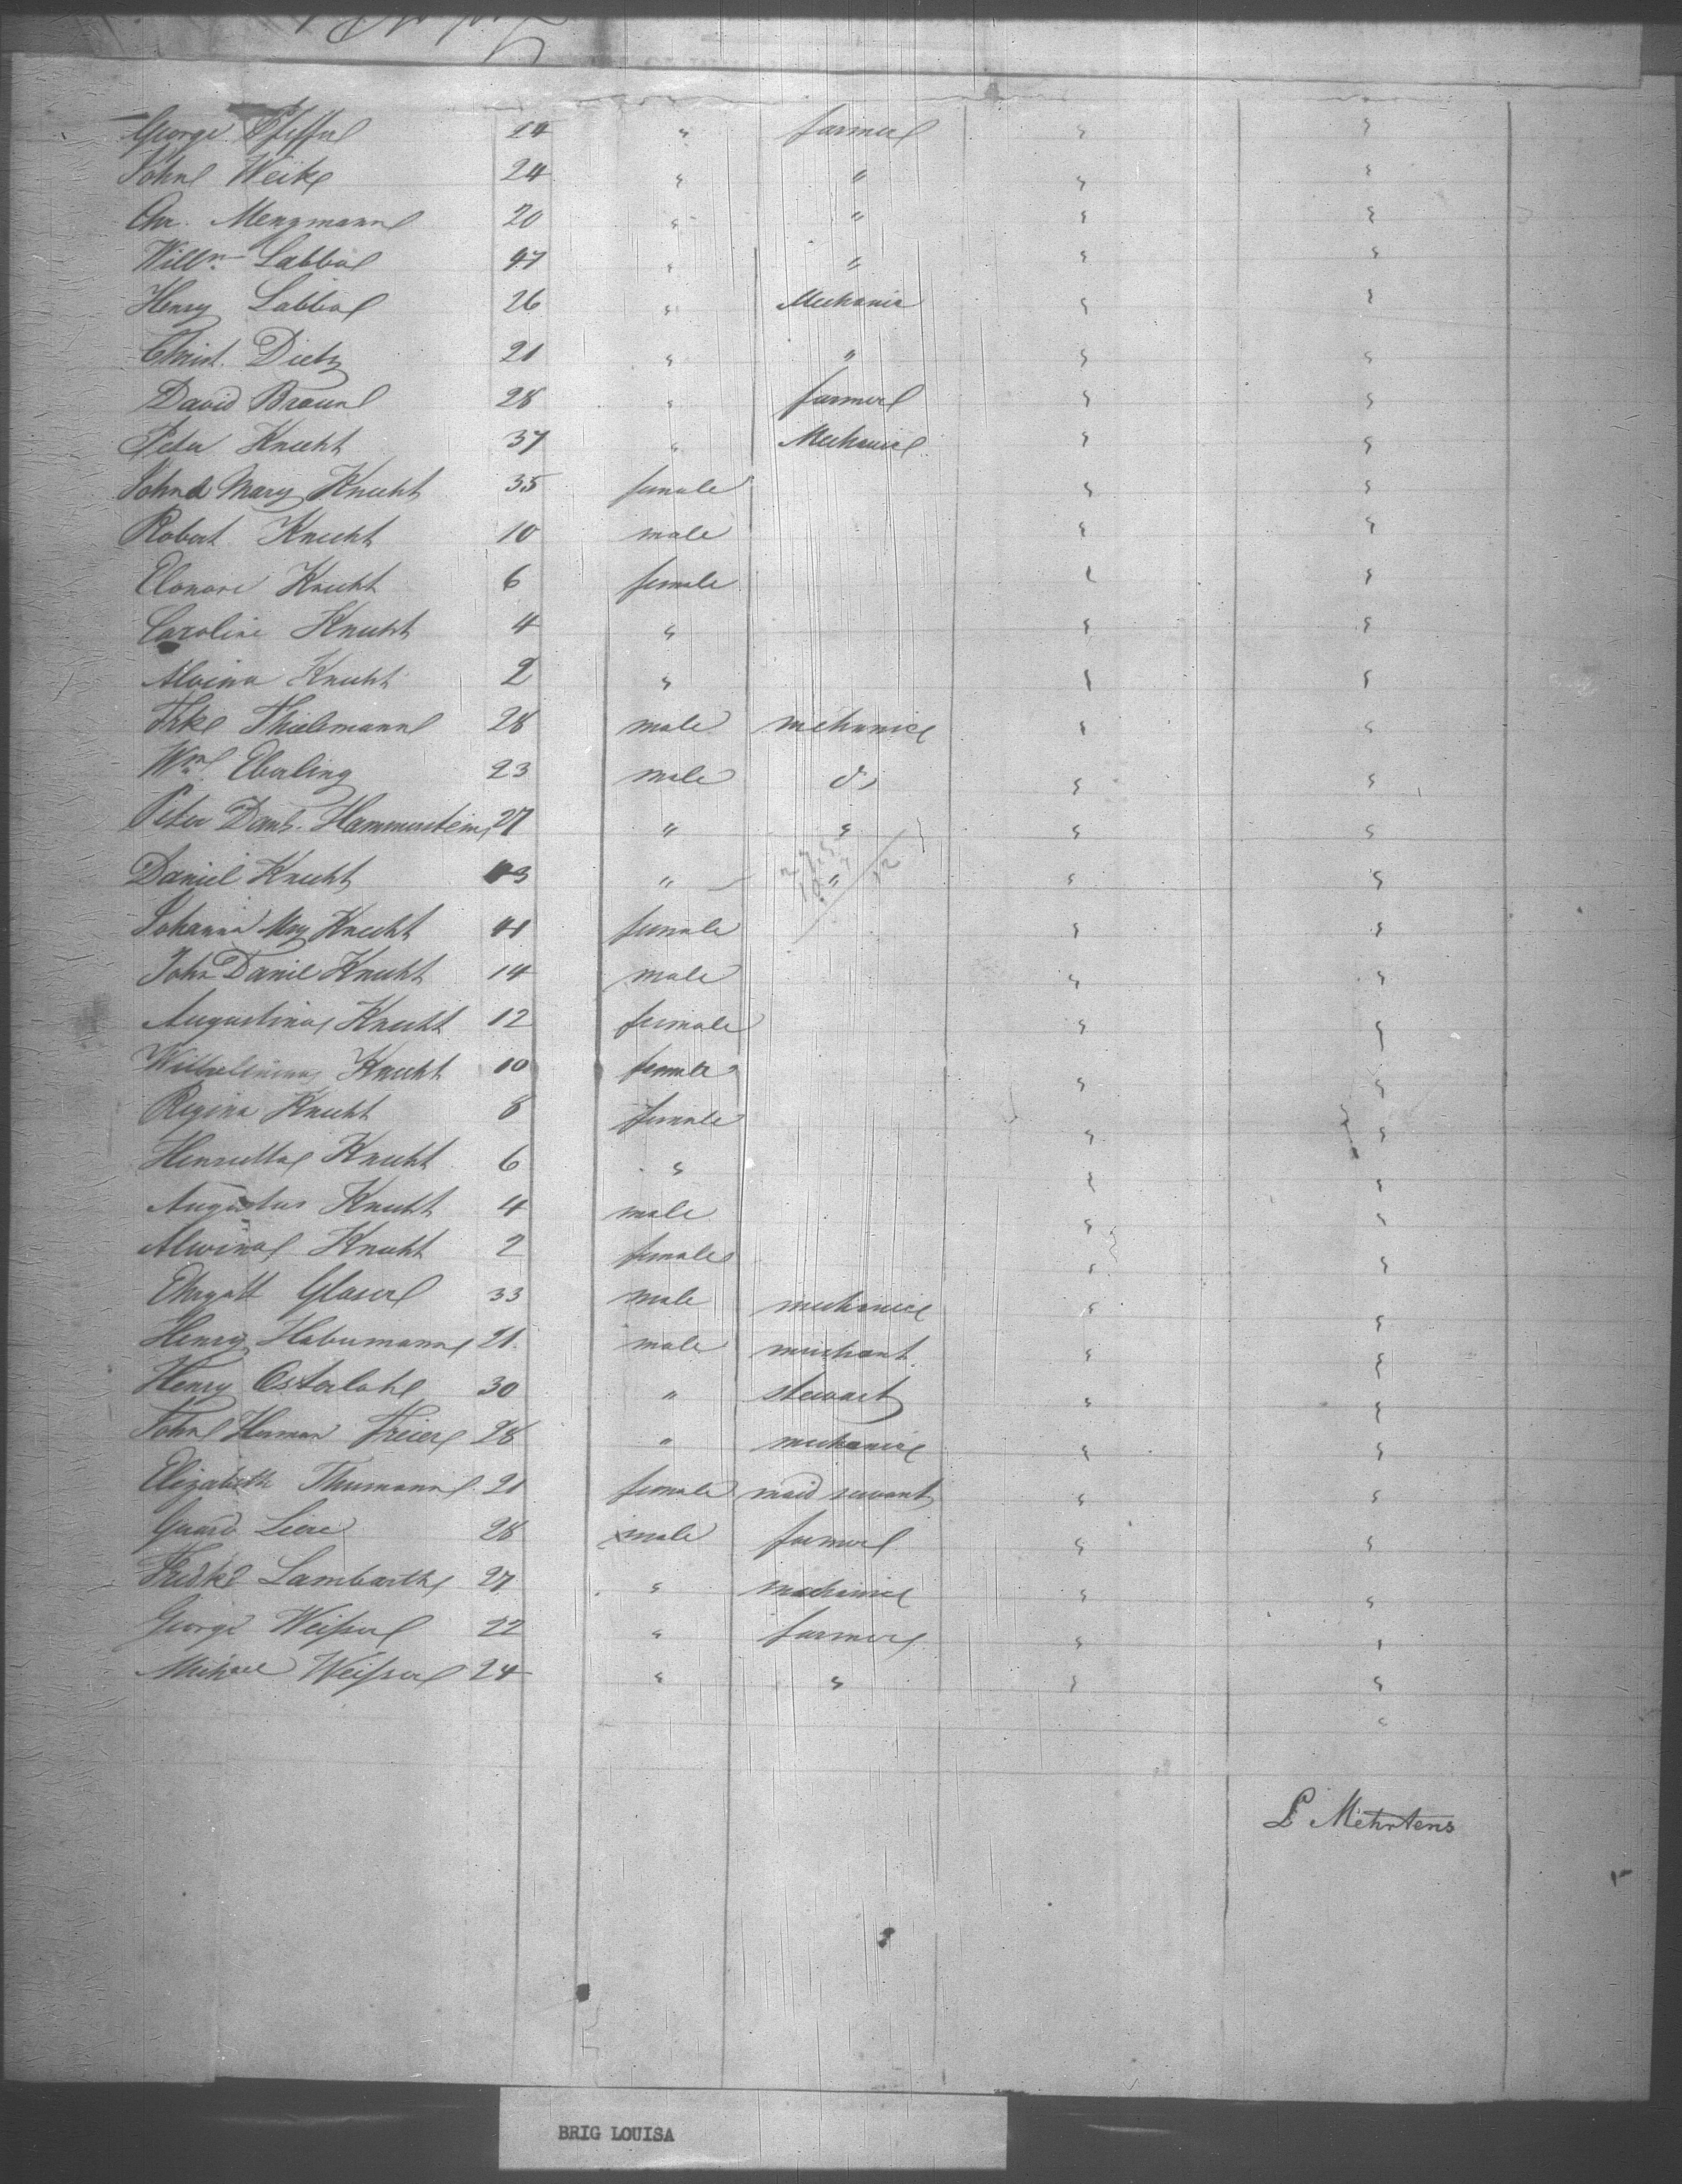 George Pfeiffer 24 " farmer " "
John Weike 24 " " " "
Chr. Mengmann 20 " " " "
Willm Labbal 47 " " " "
Henry Labbal 26 " Mechanic " "
Christ. Dietz 21 " " " "
David Braun 28 " farmer " "
Peter Knecht 37 " Mechanic " "
Mary Knecht 35 female " "
Robert Knecht 10 male " "
Elonore Knecht 6 female " "
Caroline Knecht 4 " " "
Alvina Knecht 2 " " "
Thielemann 28 male mechanic " "
Wm Eberling 23 male do " "
Peter Danl. Hammerstein 27 " " " "
Daniel Knecht 43 " " " "
Johanna Mry Knecht 41 female " "
John Daniel Knecht 14 male " "
Augustina Knecht 12 female " "
Wilhelmina Knecht 10 female " "
Regina Knecht 8 female " "
Henrietta Knecht 6 " " "
Augustus Knecht 4 male " "
Alwina Knecht 2 female " "
Glaser 33 male mechanic " "
Henry Habermann 21 male merchant " "
Henry Osterlohe 30 " stewart " "
John Herman Freier 28 " mechanic " "
Elizabeth Thumann 21 female maid servant " "
28 male farmer " "
Fredke Lambarth 27 " mechanic " "
George Weisser 22 " farmer " "
Michael Weisser 24 " " " "
"
L Mehrtens
BRIG LOUISA